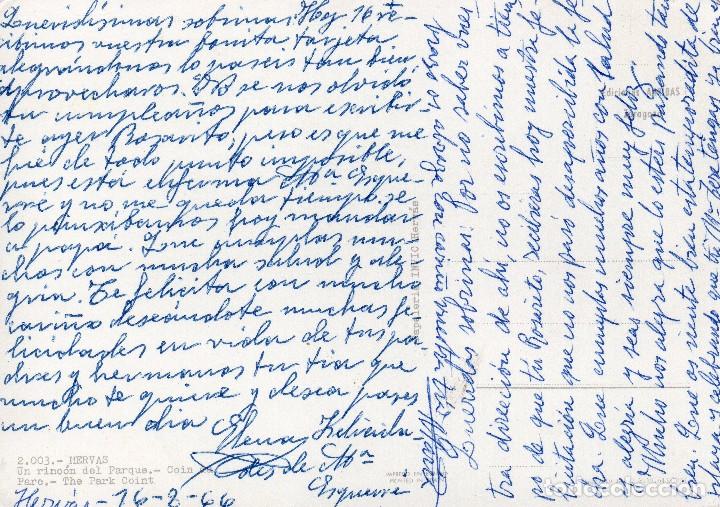 Queridísimas sobrinas: Hoy 16 re-
cibimos vuestra bonita tarjeta
alegrándonos lo paseis tan bien,
aprovecharos. No se nos olvidó
tu cumpleaños para escribir-
te ayer Rosarito, pero es que me
fué de todo punto imposible,
pues está enferma Mª Esque-
rre y no me queda tiempo, se
lo pensábamos hoy mandar
a papá. Que cumplas mu-
chos con mucha salud y ale-
gria. Te felicita con mucho
cariño deseándote muchas fe-
licidades en vida de tus pa-
dres y hermanos tu tía que
mucho te quiere y desea pases
un buen dia
Elena Felicida-
des de Mª
Esquerre
2.003.- HERVAS
Un rincón del Parque.- Coin
Parc.- The Park Coint
Hervás 16-8-66
Papelería INVIC Hervás
Queridas sobrinas: Por no saber vues-
tra dirección de ahí, no os escribimos a tiem-
po de que tú Rosarito, recibieras hoy nuestra fe-
licitación que no nos pasó desapercibida la fe-
cha. Que cumplas muchos años con salud
y alegría y seas siempre muy feliz.
Mucho nos alegra que lo esteis pasando tan
bien. Que os siente bien esta temporadita de